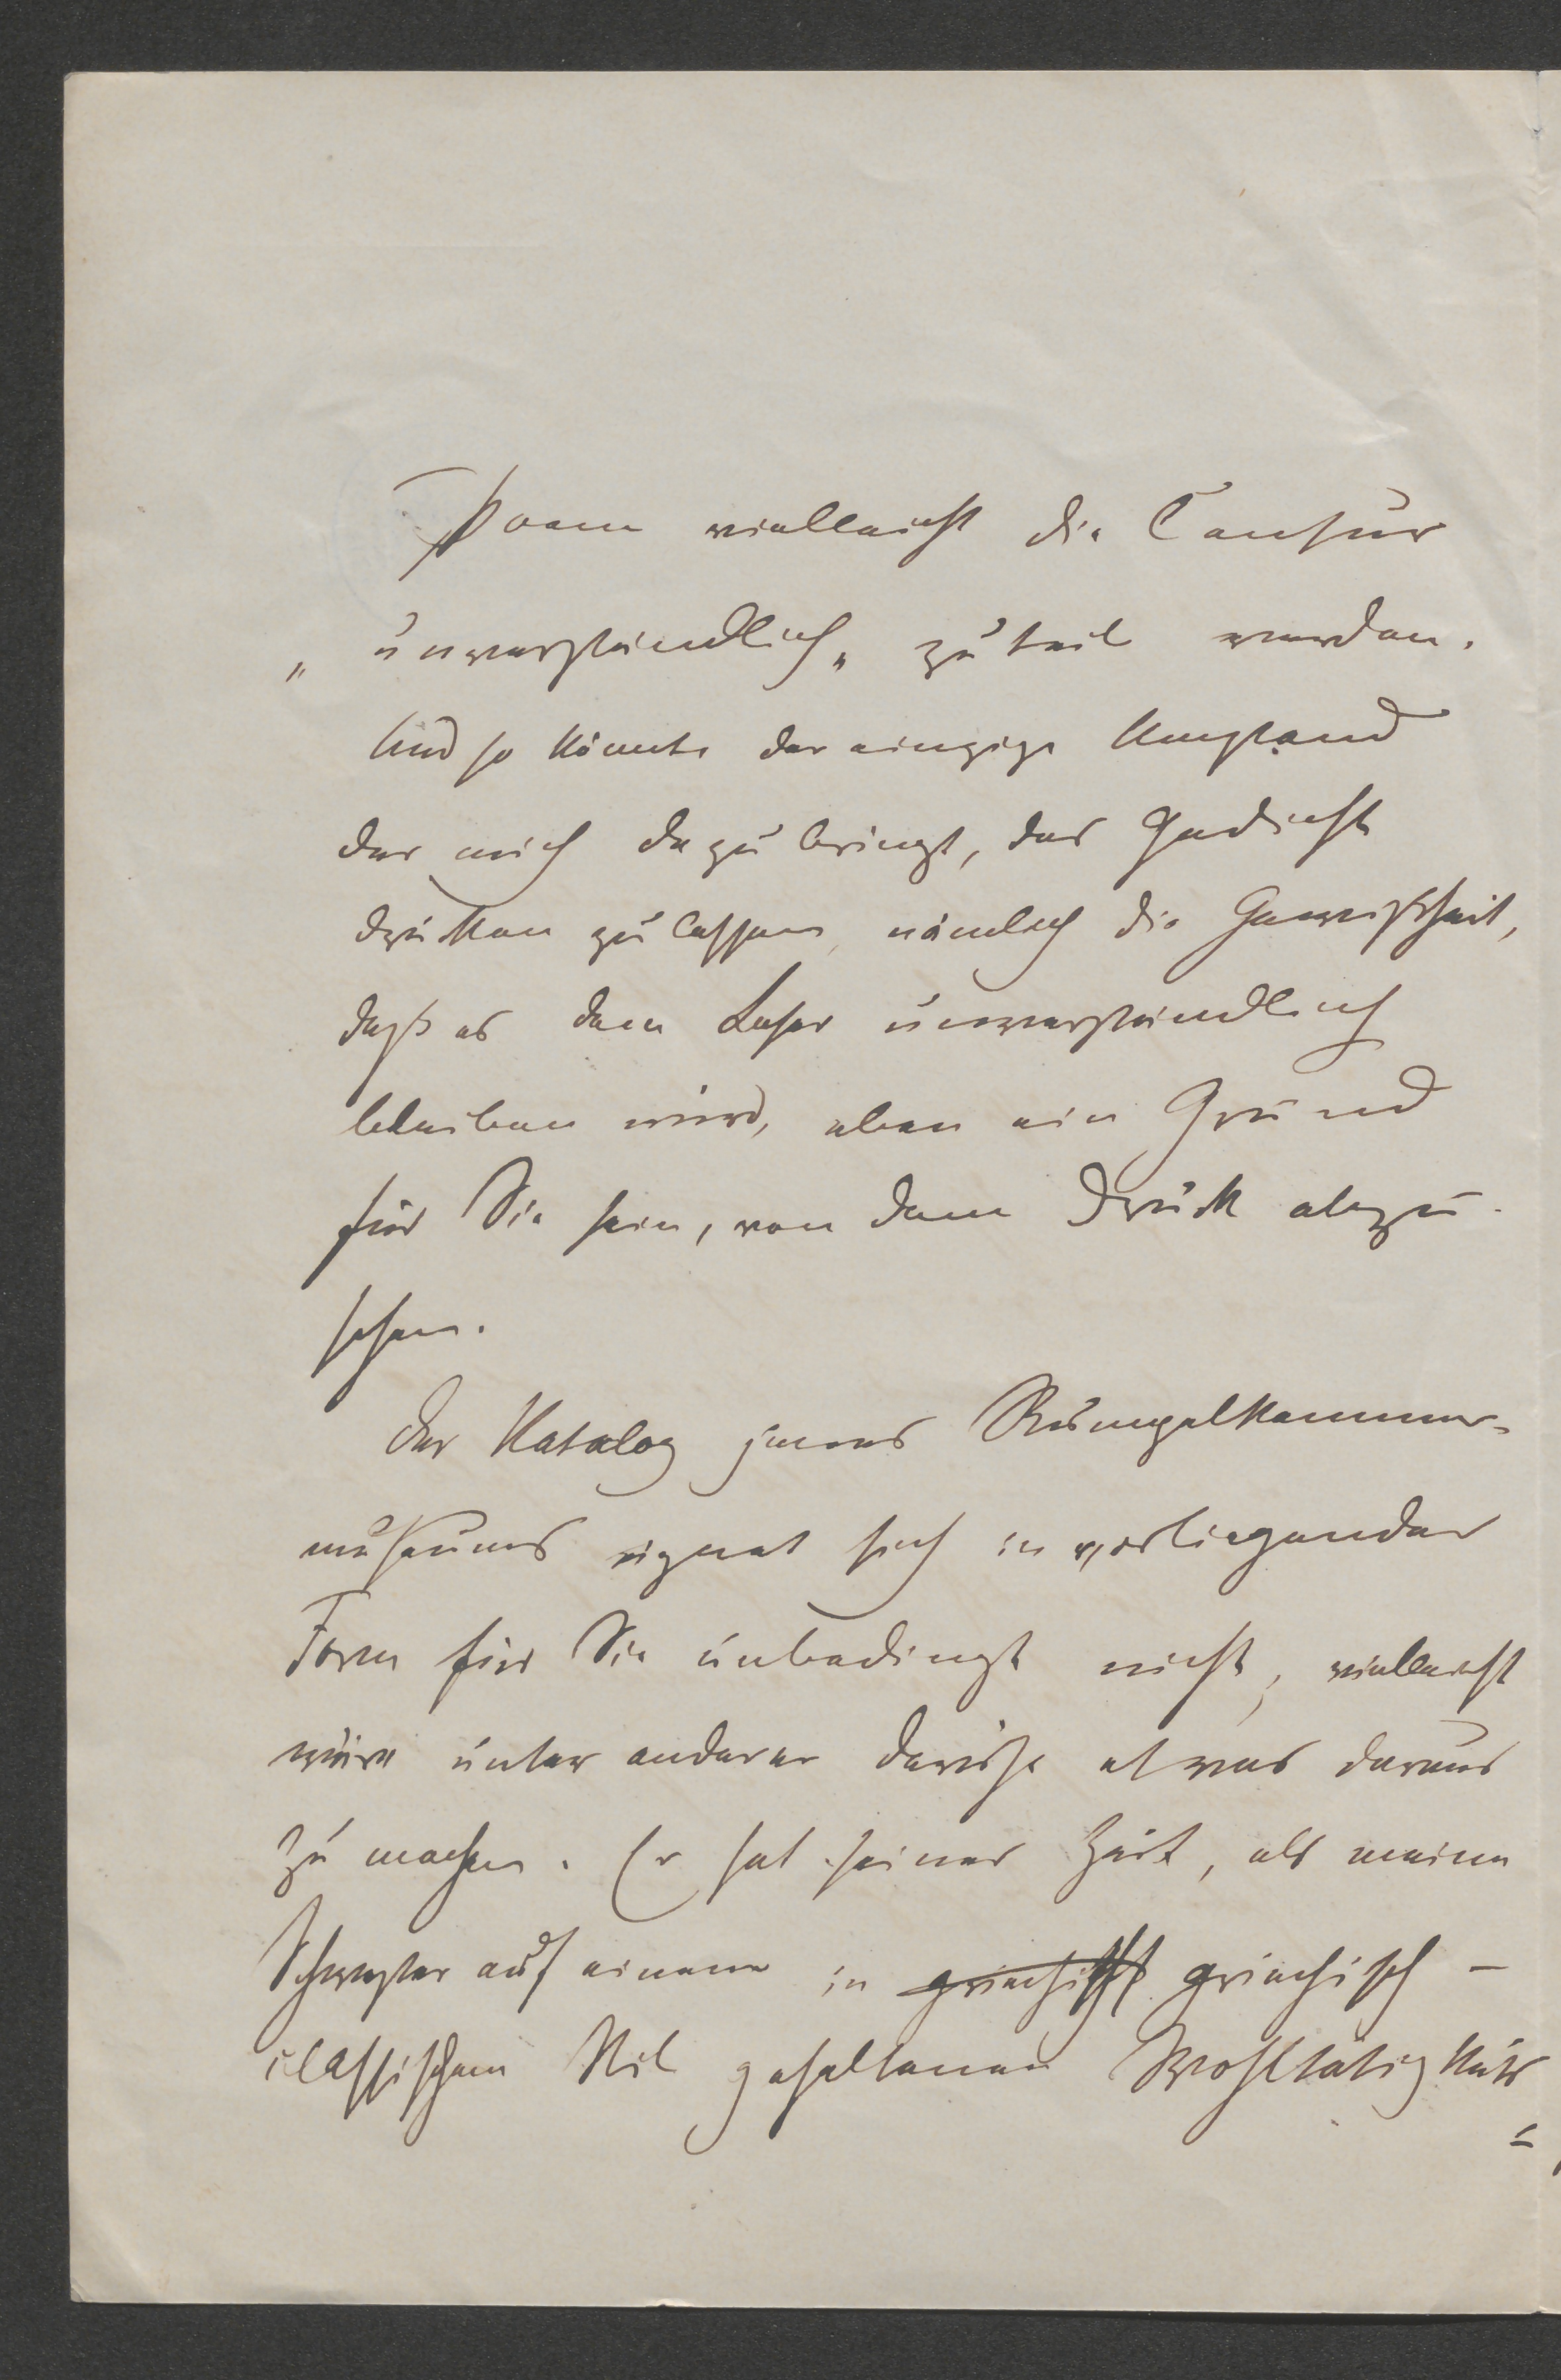 Poem vielleicht die Censur
„unverständlich„ zu teil werden.
Und so könnte der einzige Umstand
der mich dazu bringt, das Gedicht
drukken zu lassen, nämlich die Gewißheit,
daß es dem Leser unverständlich
bleiben wird, eben ein Grund
für Sie sein, von dem Druck abzu-
sehen.
Der Katalog jenes Rumpelkammer-
museums eignet sich in vorliegender
Form für Sie unbedingt nicht, vielleicht
wäre unter anderer Devise etwas daraus
zu machen. Er hat seiner Zeit, als meine
Schwester auf einem in griechisch griechisch -
classischem Stil gehaltenen Wohltätigkeits
=